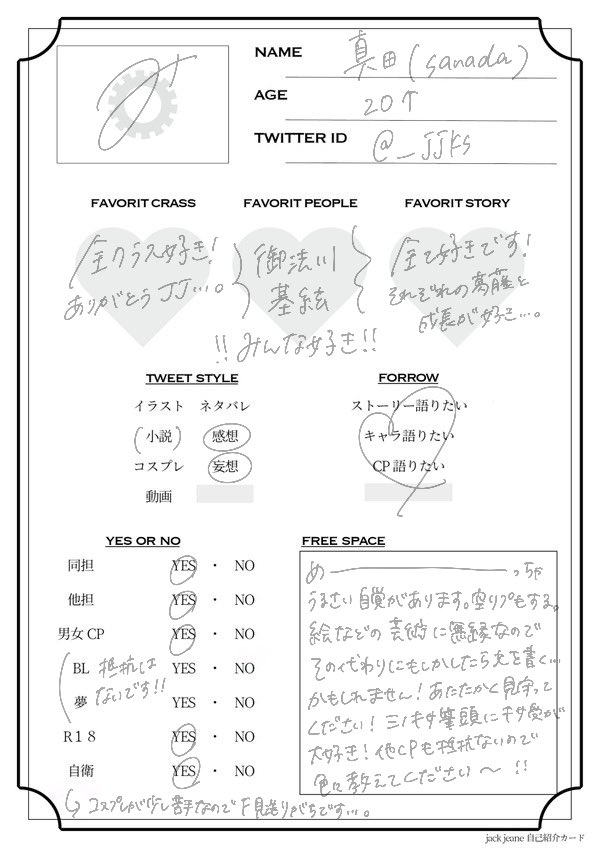 NAME 真田(sanada)
AGE 20↑
TWITTER ID @_JJKS
FAVORIT CRASS
全クラス好き!
ありがとう JJ…。
FAVORIT PEOPLE
御法川
基絃
!!みんな好き!!
FAVORIT STORY
全て好きです!
それぞれの葛藤と
成長が好き…。
TWEET STYLE
イラスト ネタバレ
(小説) 感想
コスプレ 妄想
動画
FORROW
ストーリー語りたい
キャラ語りたい
CP語りたい
YES OR NO
同担 YES ・ NO
他担 YES ・ NO
男女CP YES ・ NO
BL YES ・ NO
夢 YES ・ NO
抵抗は
ないです!!
R18 YES ・ NO
自衛 YES ・ NO
↳ コスプレが少し苦手なので下見送りがちです…。
FREE SPACE
め――――――っちゃ
うるさい自覚があります。空リプもする。
絵などの芸術に無縁なので
その代わりにもしかしたら文を書く…
かもしれません!あたたかく見守って
ください!ミノキサ筆頭にキサ受が
大好き!他CPも抵抗ないので
色々教えてください〜!!
jack jeane 自己紹介カード